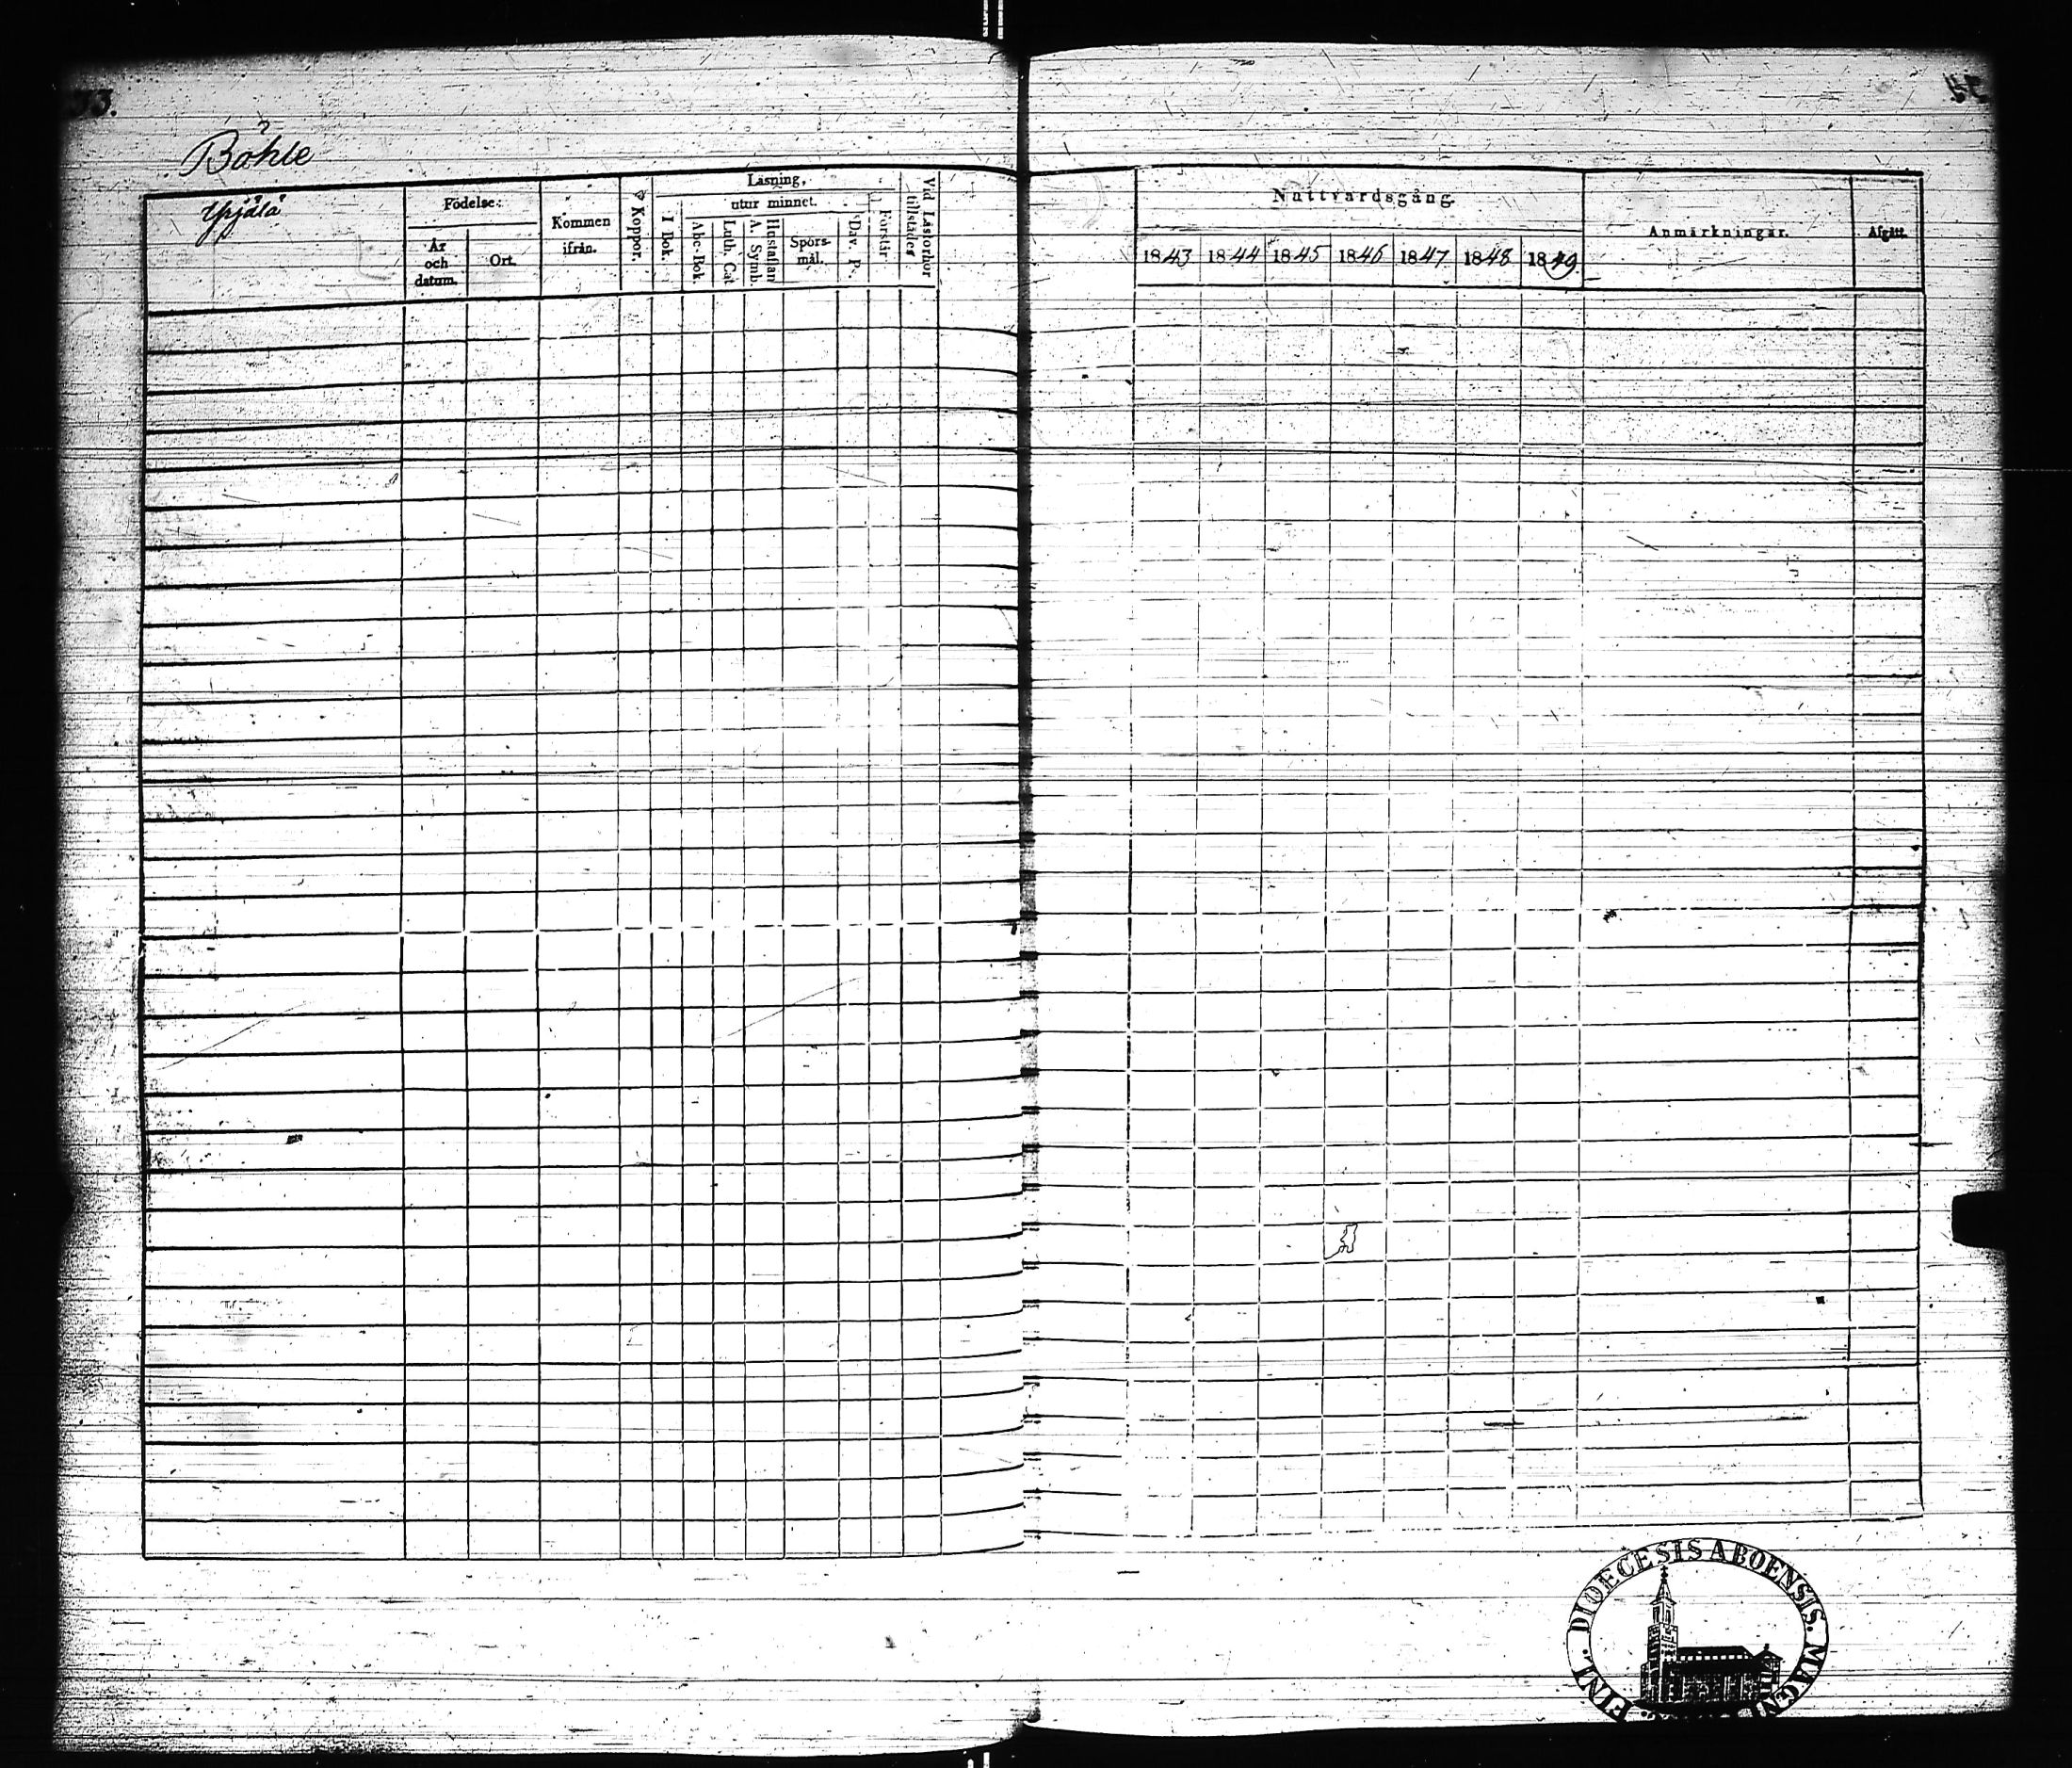 Böhle
Ypjälä
Födelse:
År och datum.
Ort.
Kommen ifrån.
Koppor.
Läsning,
utur minnet.
I Bok.
Abc-Bok.
Luth. Cat
Hustaflan A. Symb.
Spörs-mål.
Dav. P.
Förstår
Vid Läsförhör tillstädes
Nattvardsgång.
1843 1844 1845 1846 1847 1848 1849
Anmärkningar.
Afgått.
DIOECESIS ABOENSIS. MAGNI